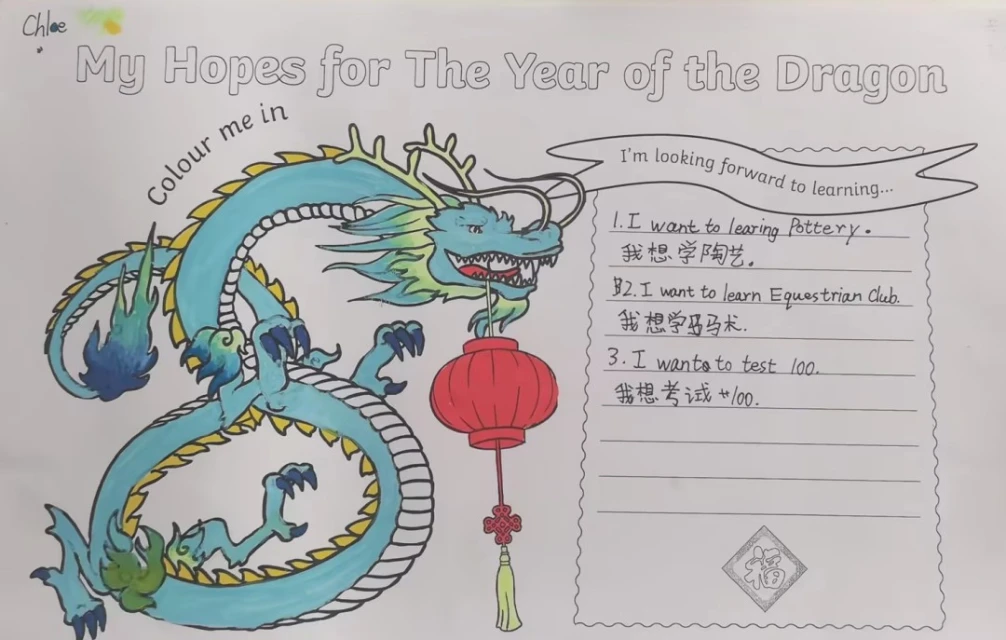 Chloe
My Hopes for The Year of the Dragon
Colour me in
I'm looking forward to learning...
1. I want to learing Pottery.
我想学陶艺.
2. I want to learn Equestrian Club.
我想学马术.
3. I wants to test 100.
我想考试 +100.
福